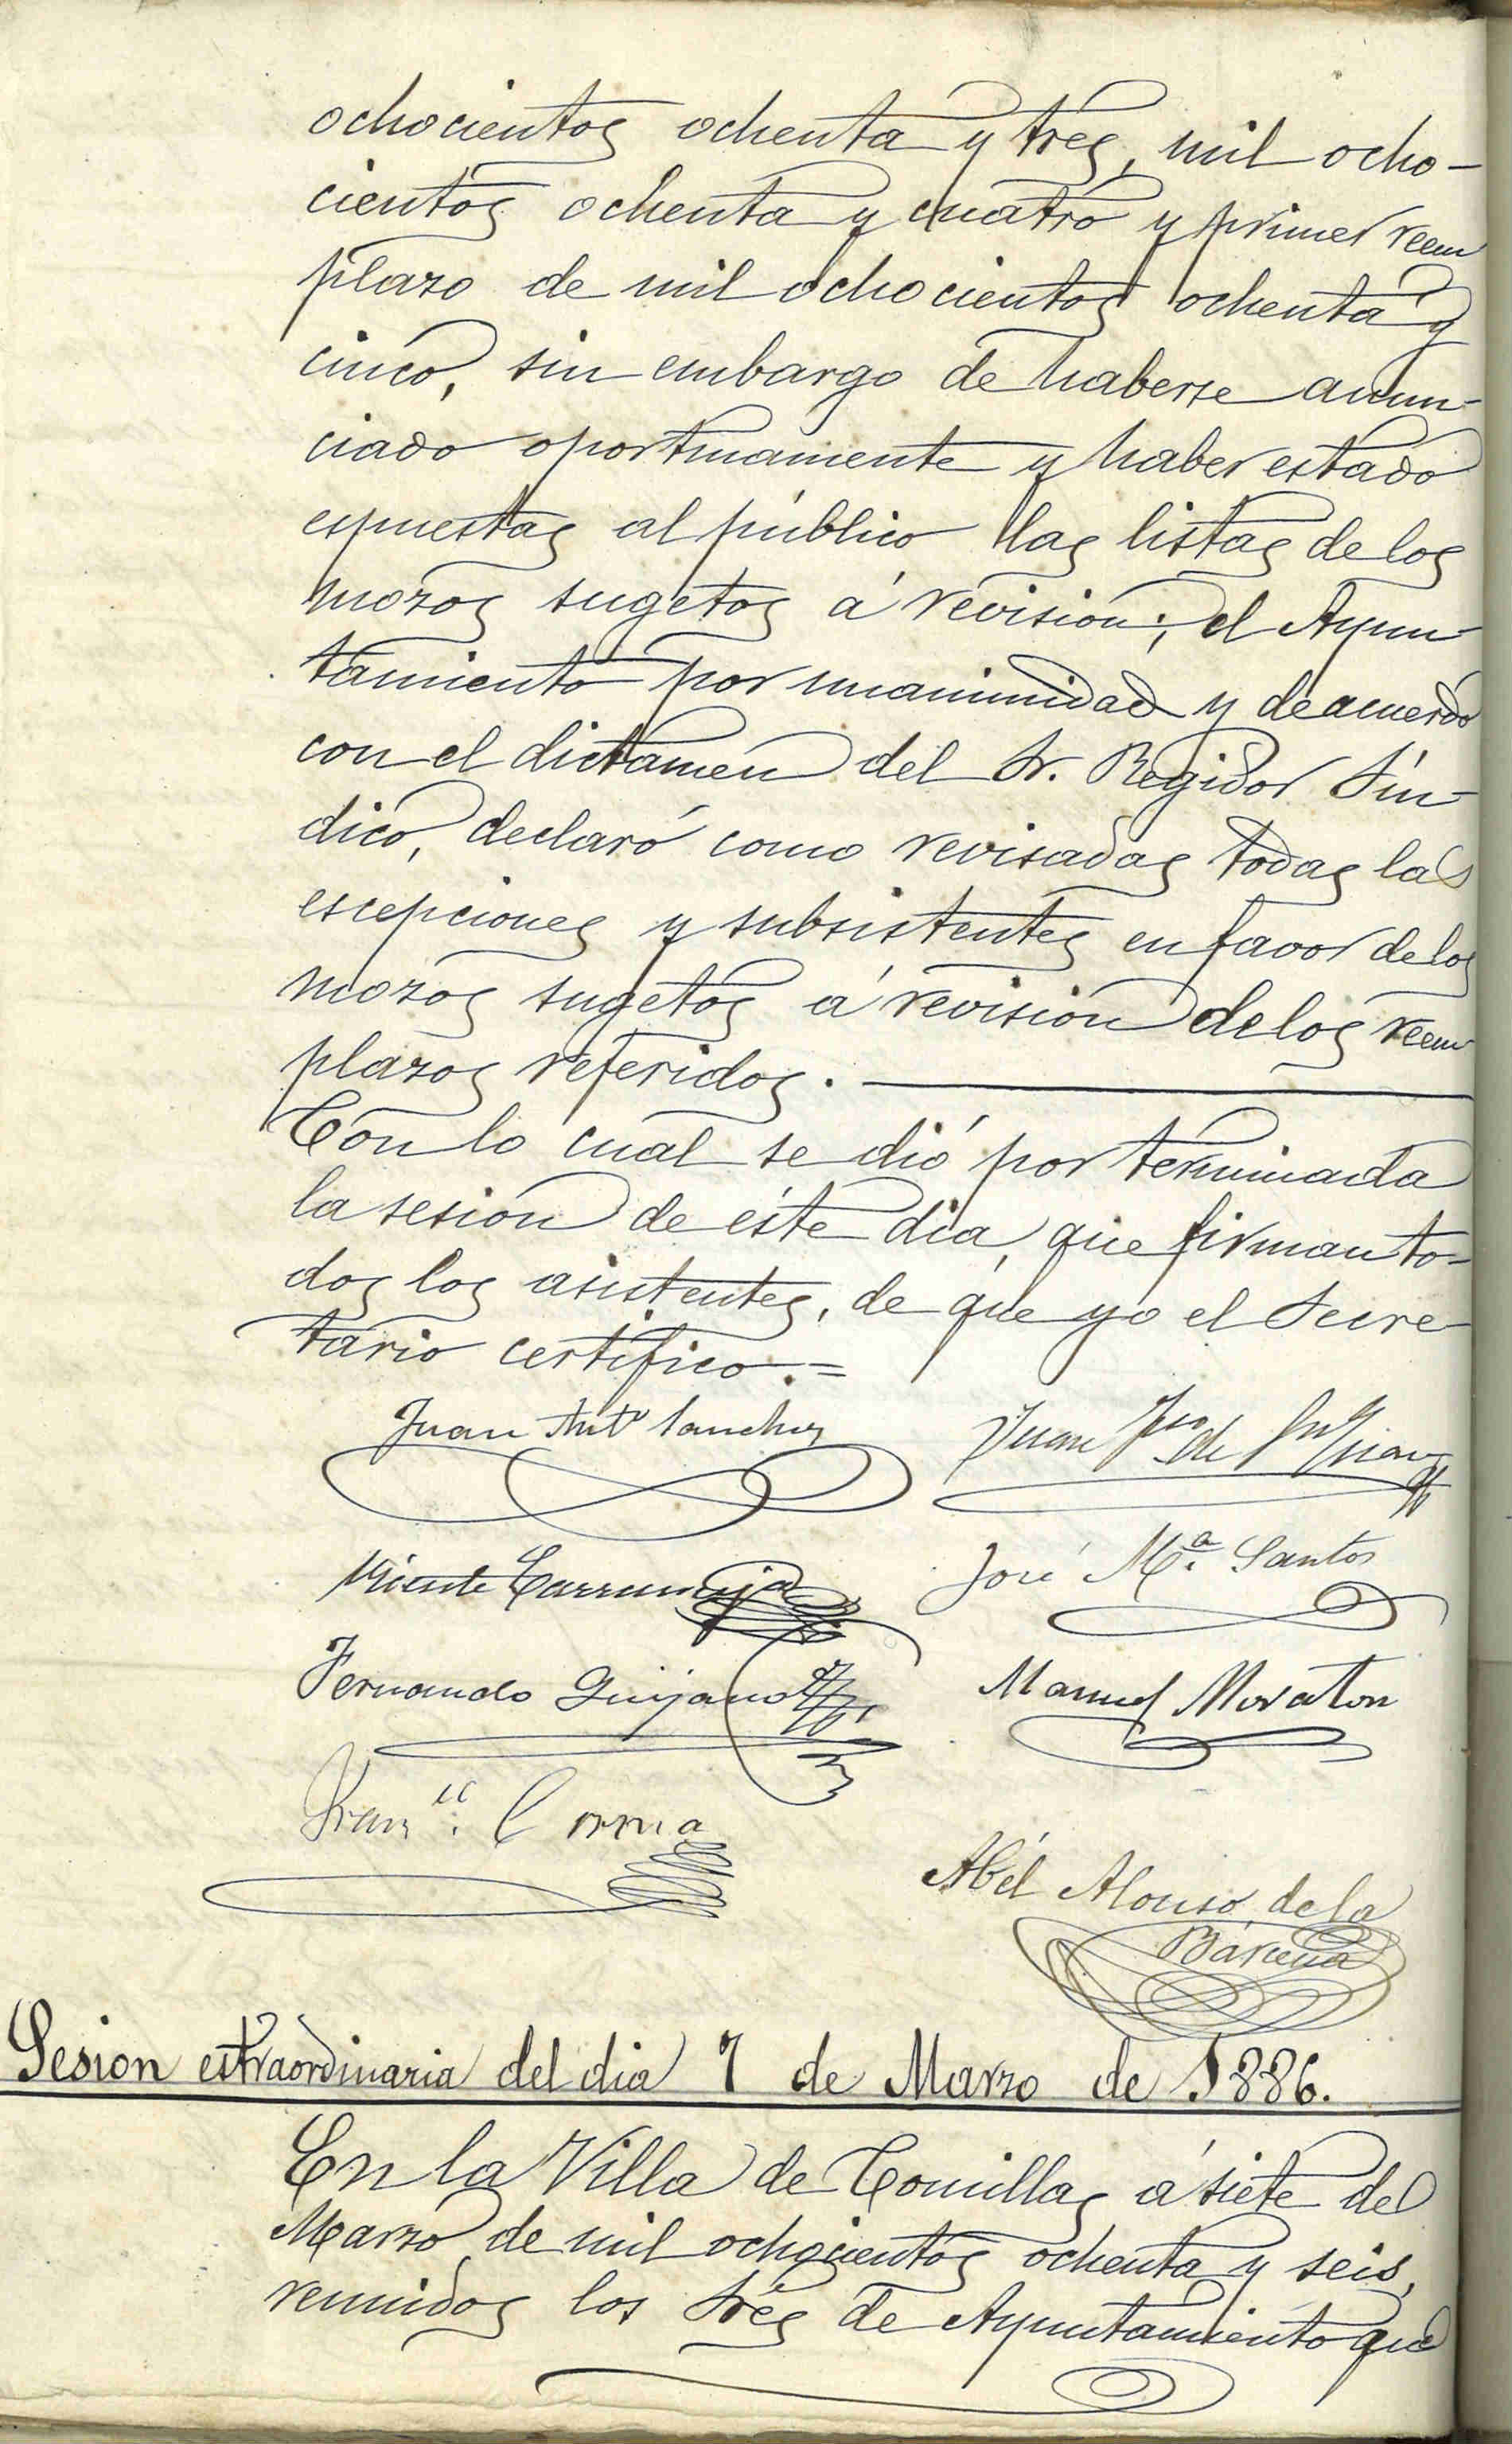 ochocientos ochenta y tres, mil ocho-
cientos ochenta y cuatro y primer reem
plazo de mil ochocientos ochenta y
cinco, sin embargo de haberse anun-
ciado oportunamente y haber estado
espuestas al público las listas de los
mozos sugetos á revision; el Ayun-
tamiento por unanimidad y de acuerdo
con el dictamen del Sr. Regidor Sín-
dico, declaró como revisadas todas las
escepciones y subsistentes en favor de los
mozos sugetos á revision de los reem
plazos referidos.
Con lo cual se dió por terminada
la sesion de éste dia, que firman to-
dos los asistentes, de que yo el Secre-
tario certifico.=
Juan Antº Sanchez Juan
Vicente José Mª. Santos
Fernando Quijano Manuel Moraton
Franco.
Abél Alonso de la
Bárcena
Sesion estraordinaria del dia 7 de Marzo de 1886.
En la Villa de Comillas á siete de
Marzo de mil ochocientos ochenta y seis,
reunidos los Sres de Ayuntamiento que